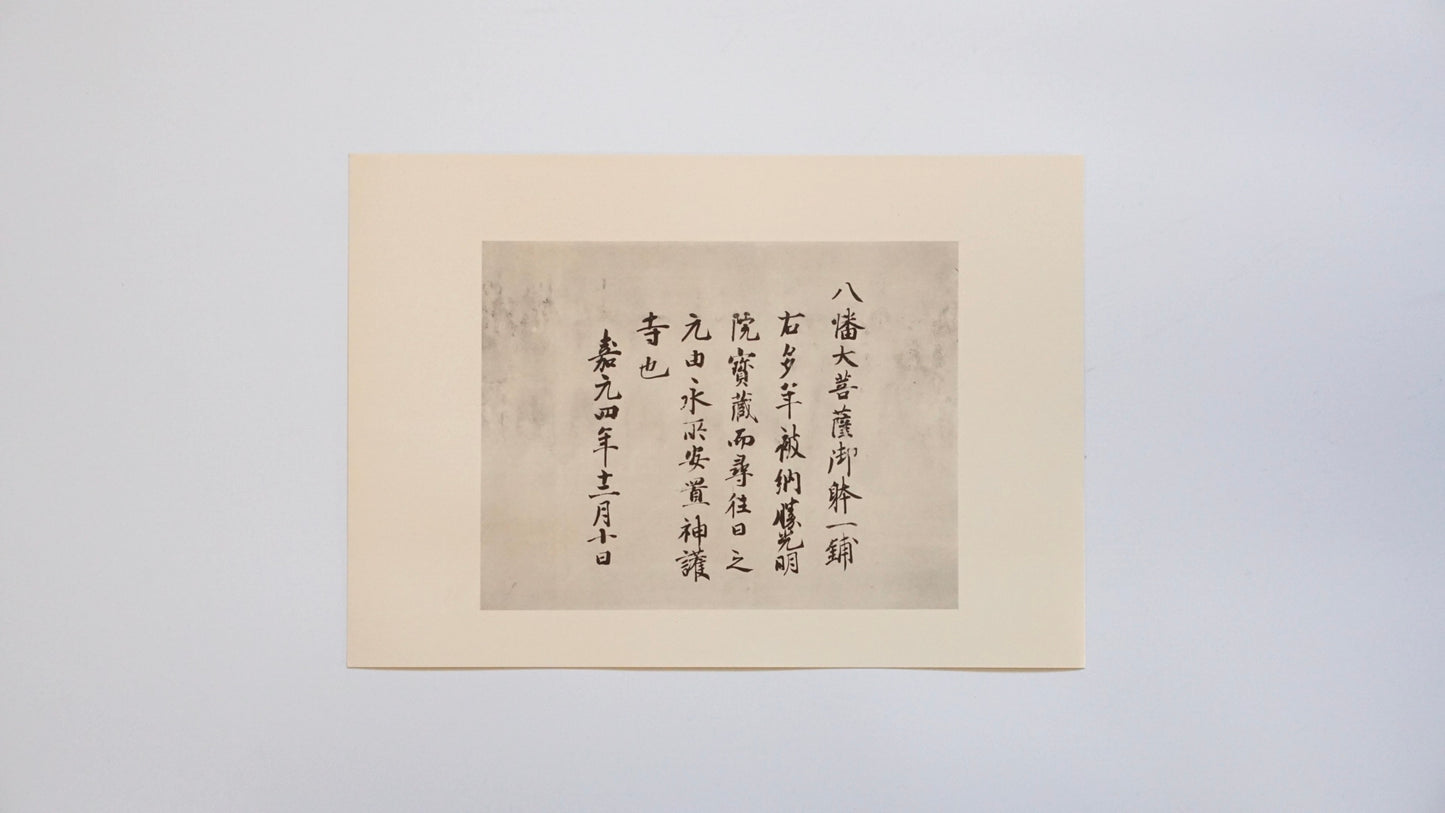 八幡大菩薩御躰一鋪
右多年被納勝光明
院寳蔵而尋往日之
元由永所安置神護
寺也
嘉元四年十二月十日